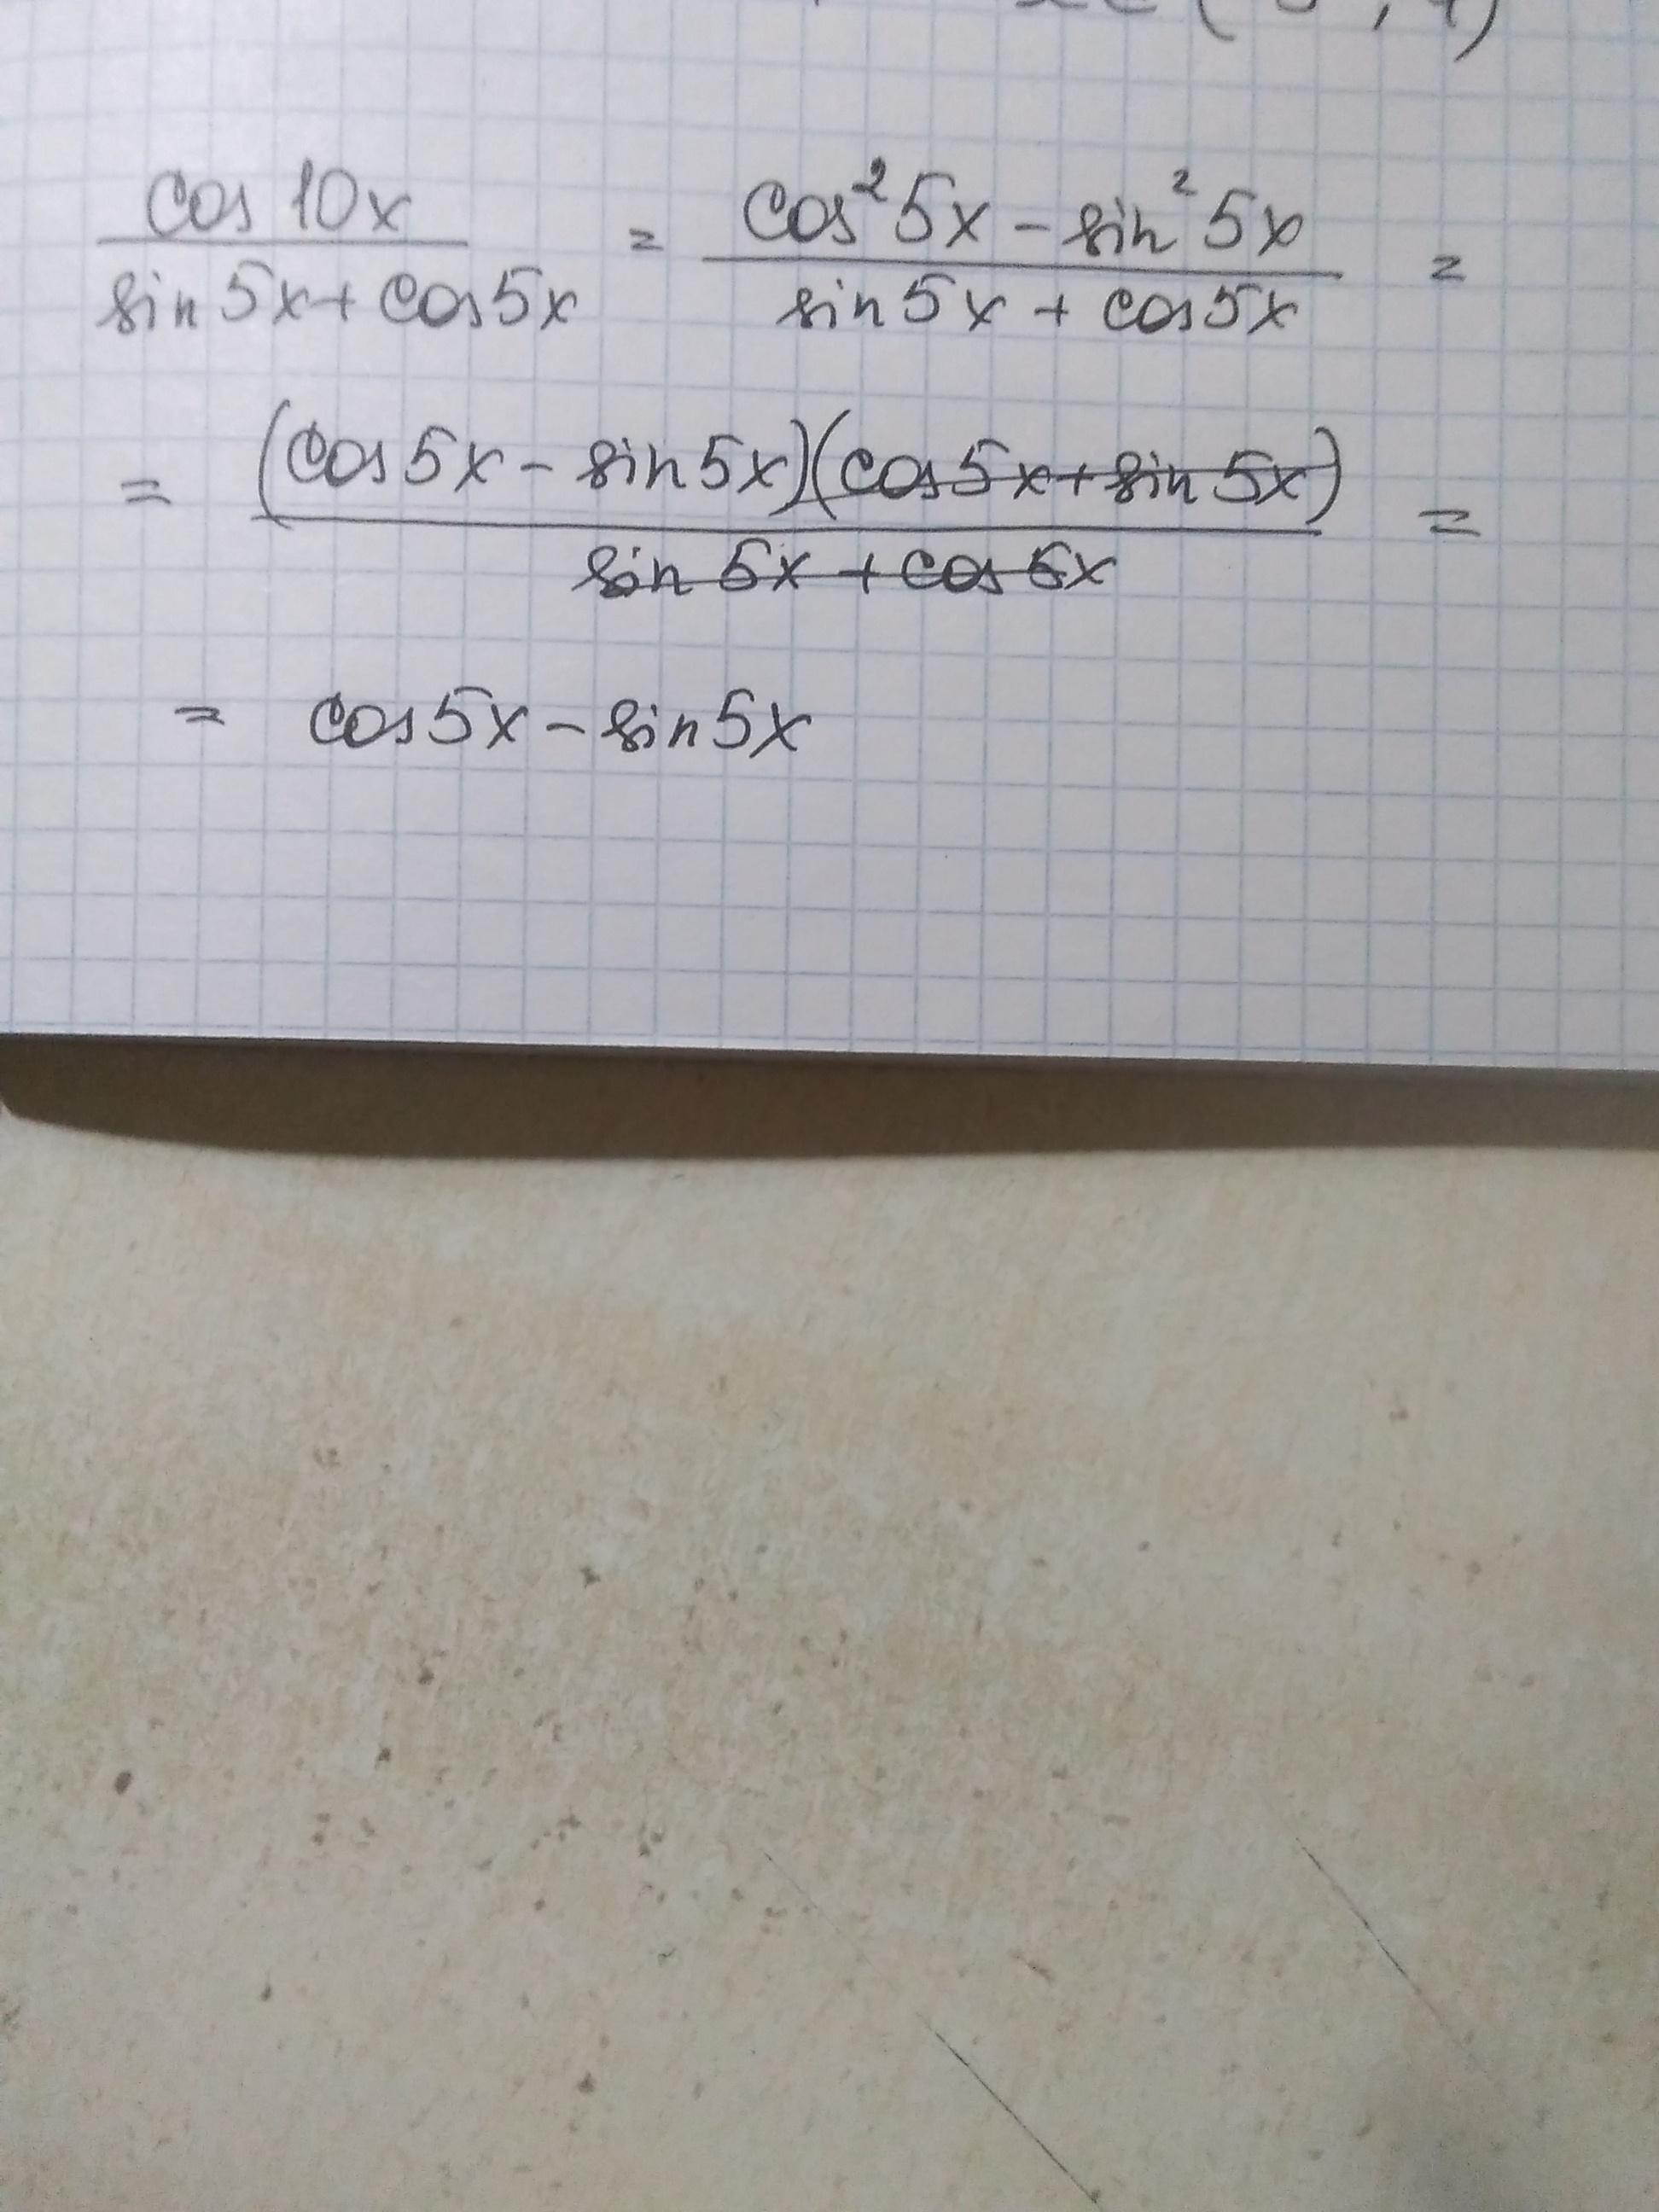 cos 10x / sin 5x + cos 5x = cos² 5x - sin² 5x / sin 5x + cos 5x =
= (cos 5x - sin 5x)(cos 5x + sin 5x) / sin 5x + cos 5x =
= cos 5x - sin 5x